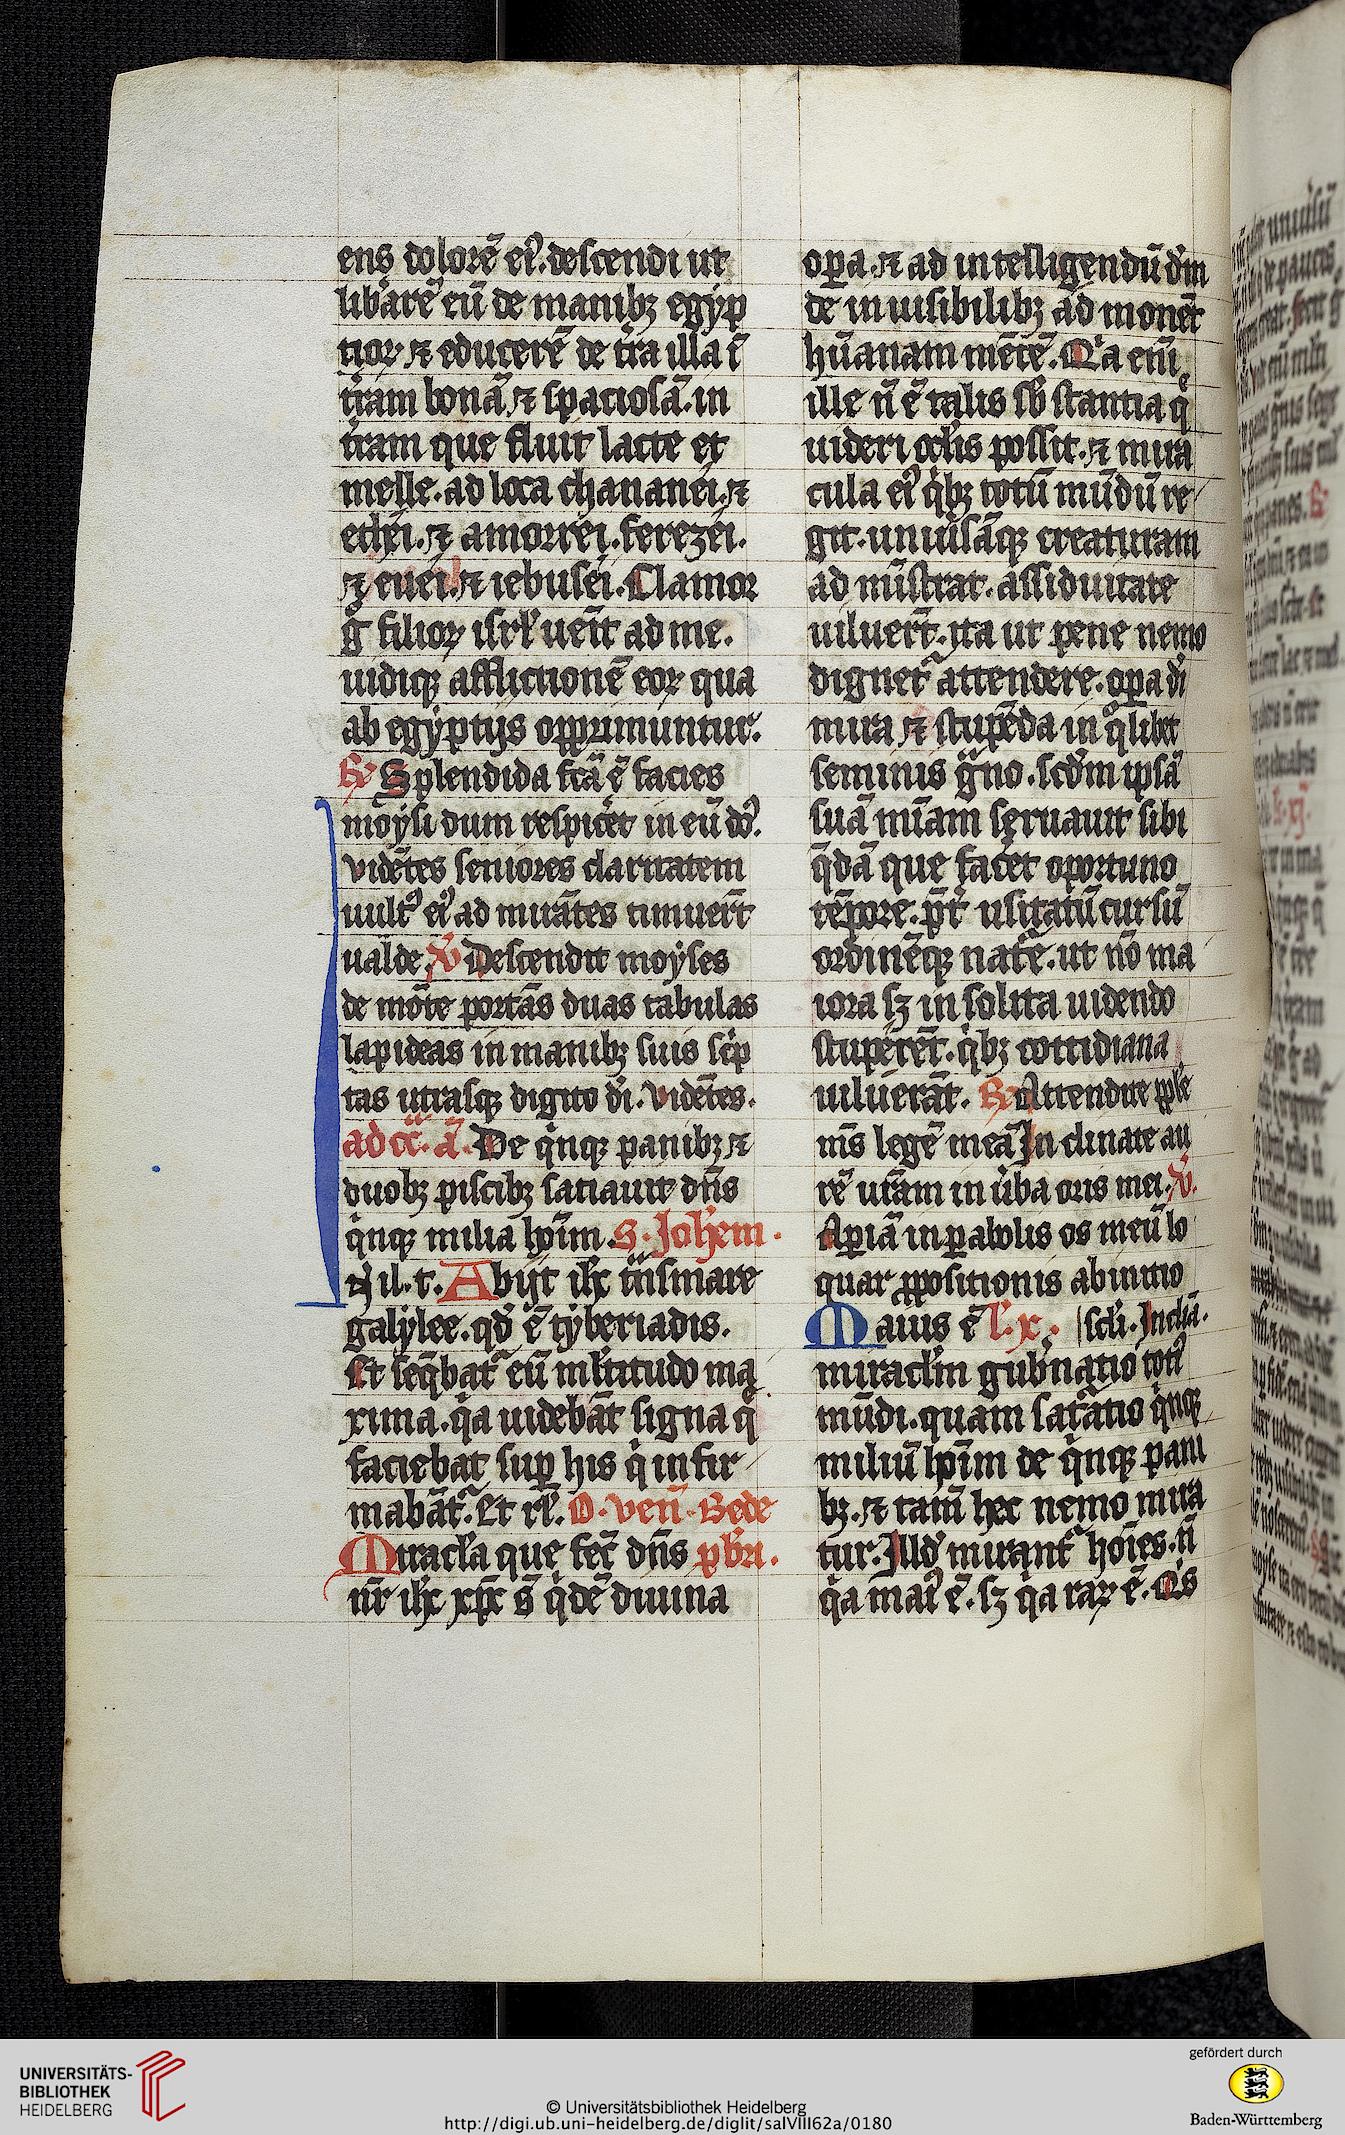 ens dolorē eiꝰ. descendi ut
lib̾arē eū de manibꝫ egyp
tioꝝ ⁊ educerē de tr̄a illa ī
tr̄am bonā ⁊ spaciosā. in
tr̄am que fluit lacte et
melle. ad loca chananei. ⁊
ethei. ⁊ amorrei. ferezei.
⁊ euei. ⁊ iebusei. Clamor
gͦ filioꝝ isrl̓ uen̄it ad me.
uidiqꝫ afflictionē eoꝝ qua
ab egyptijs opprimuntur.
R̸ Splendida fcā ē facies
moysi dum respic̾et in eū dn̄s.
vidētes seniores claritatem
uultꝰ eiꝰ ad mirātes timuer̄t
ualde. V̄ Descendit moyses
de mōte portās duas tabulas
lapideas in manibꝫ suis sc̾ip
tas utrasqꝫ digito di. vidētes.
ad cc̄. aᷓ. De qͥnqꝫ panibꝫ ⁊
duobꝫ piscibꝫ saciauit dn̄s
qͥnqꝫ milia hoīm. S. Joh̄em.
In il. t. Abijt ihc̄ tn̄smare
galylee. qd̓ ē tyberiadis.
Et seq̄batᷣ eū ml̓titudo ma
xima. qͥa uidebāt signa q̄
faciebat sup̱ his qͥ infir
mabātᷣ. Et rl̓. O. ven̄. Bede
Miracl̓a que fec̄ dn̄s p̱br̓i.
nr̄ ihc̄ xp̄c s̄ qͥdē diuina
op̱a ⁊ ad intelligendū dm̄
de in uisibilibꝫ ad monet
hūanam mētē. Qͥa enī
ille n̄ ē talis sb̓stantia q̄
uideri oc̓lis possit. ⁊ mira
cula eiꝰ qͥbꝫ totū mūdū re
git. uniūsāqꝫ creaturam
ad mīstrat. assiduitate
uiluer̄t. ita ut pene nemo
dignetᷣ attendere. op̱a di
mira ⁊ stupēda in qͦlibet
seminis gͣno. scd̓m ipsā
suā mīam seruauit sibi
q̄dā que facet oportuno
tēpore. p̄t̾ usitatū cursū
ordinēqꝫ nat̾e. ut nō ma
iora sꝫ in solita uidendo
stuperēt. qͥbꝫ cottidiana
uiluerāt. R̸ Attendite pp̄le
ms̄ legē meā In clinate au
rē ur̄am in ūba oris mei. V̄.
Ap̱iā in p̱abolis os meū lo
quar ꝓpositionis ab initio
Maius ē l̓. x. scl̓i. Inclīa.
miracl̓m gub̾natio totiꝰ
mūdi. quam sat̾atio qͥnqꝫ
miliū hoīm de qͥnqꝫ pani
bꝫ. ⁊ tam̄ hec nemo mira
tur. Illd̓ mirantᷣ hoīes. n̄
qͥa maiꝰ ē. sꝫ qͥa raꝝ ē. Qͥs
UNIVERSITÄTS-
BIBLIOTHEK
HEIDELBERG
© Universitätsbibliothek Heidelberg
http://digi.ub.uni-heidelberg.de/diglit/salVIII62a/0180
gefördert durch
Baden-Württemberg